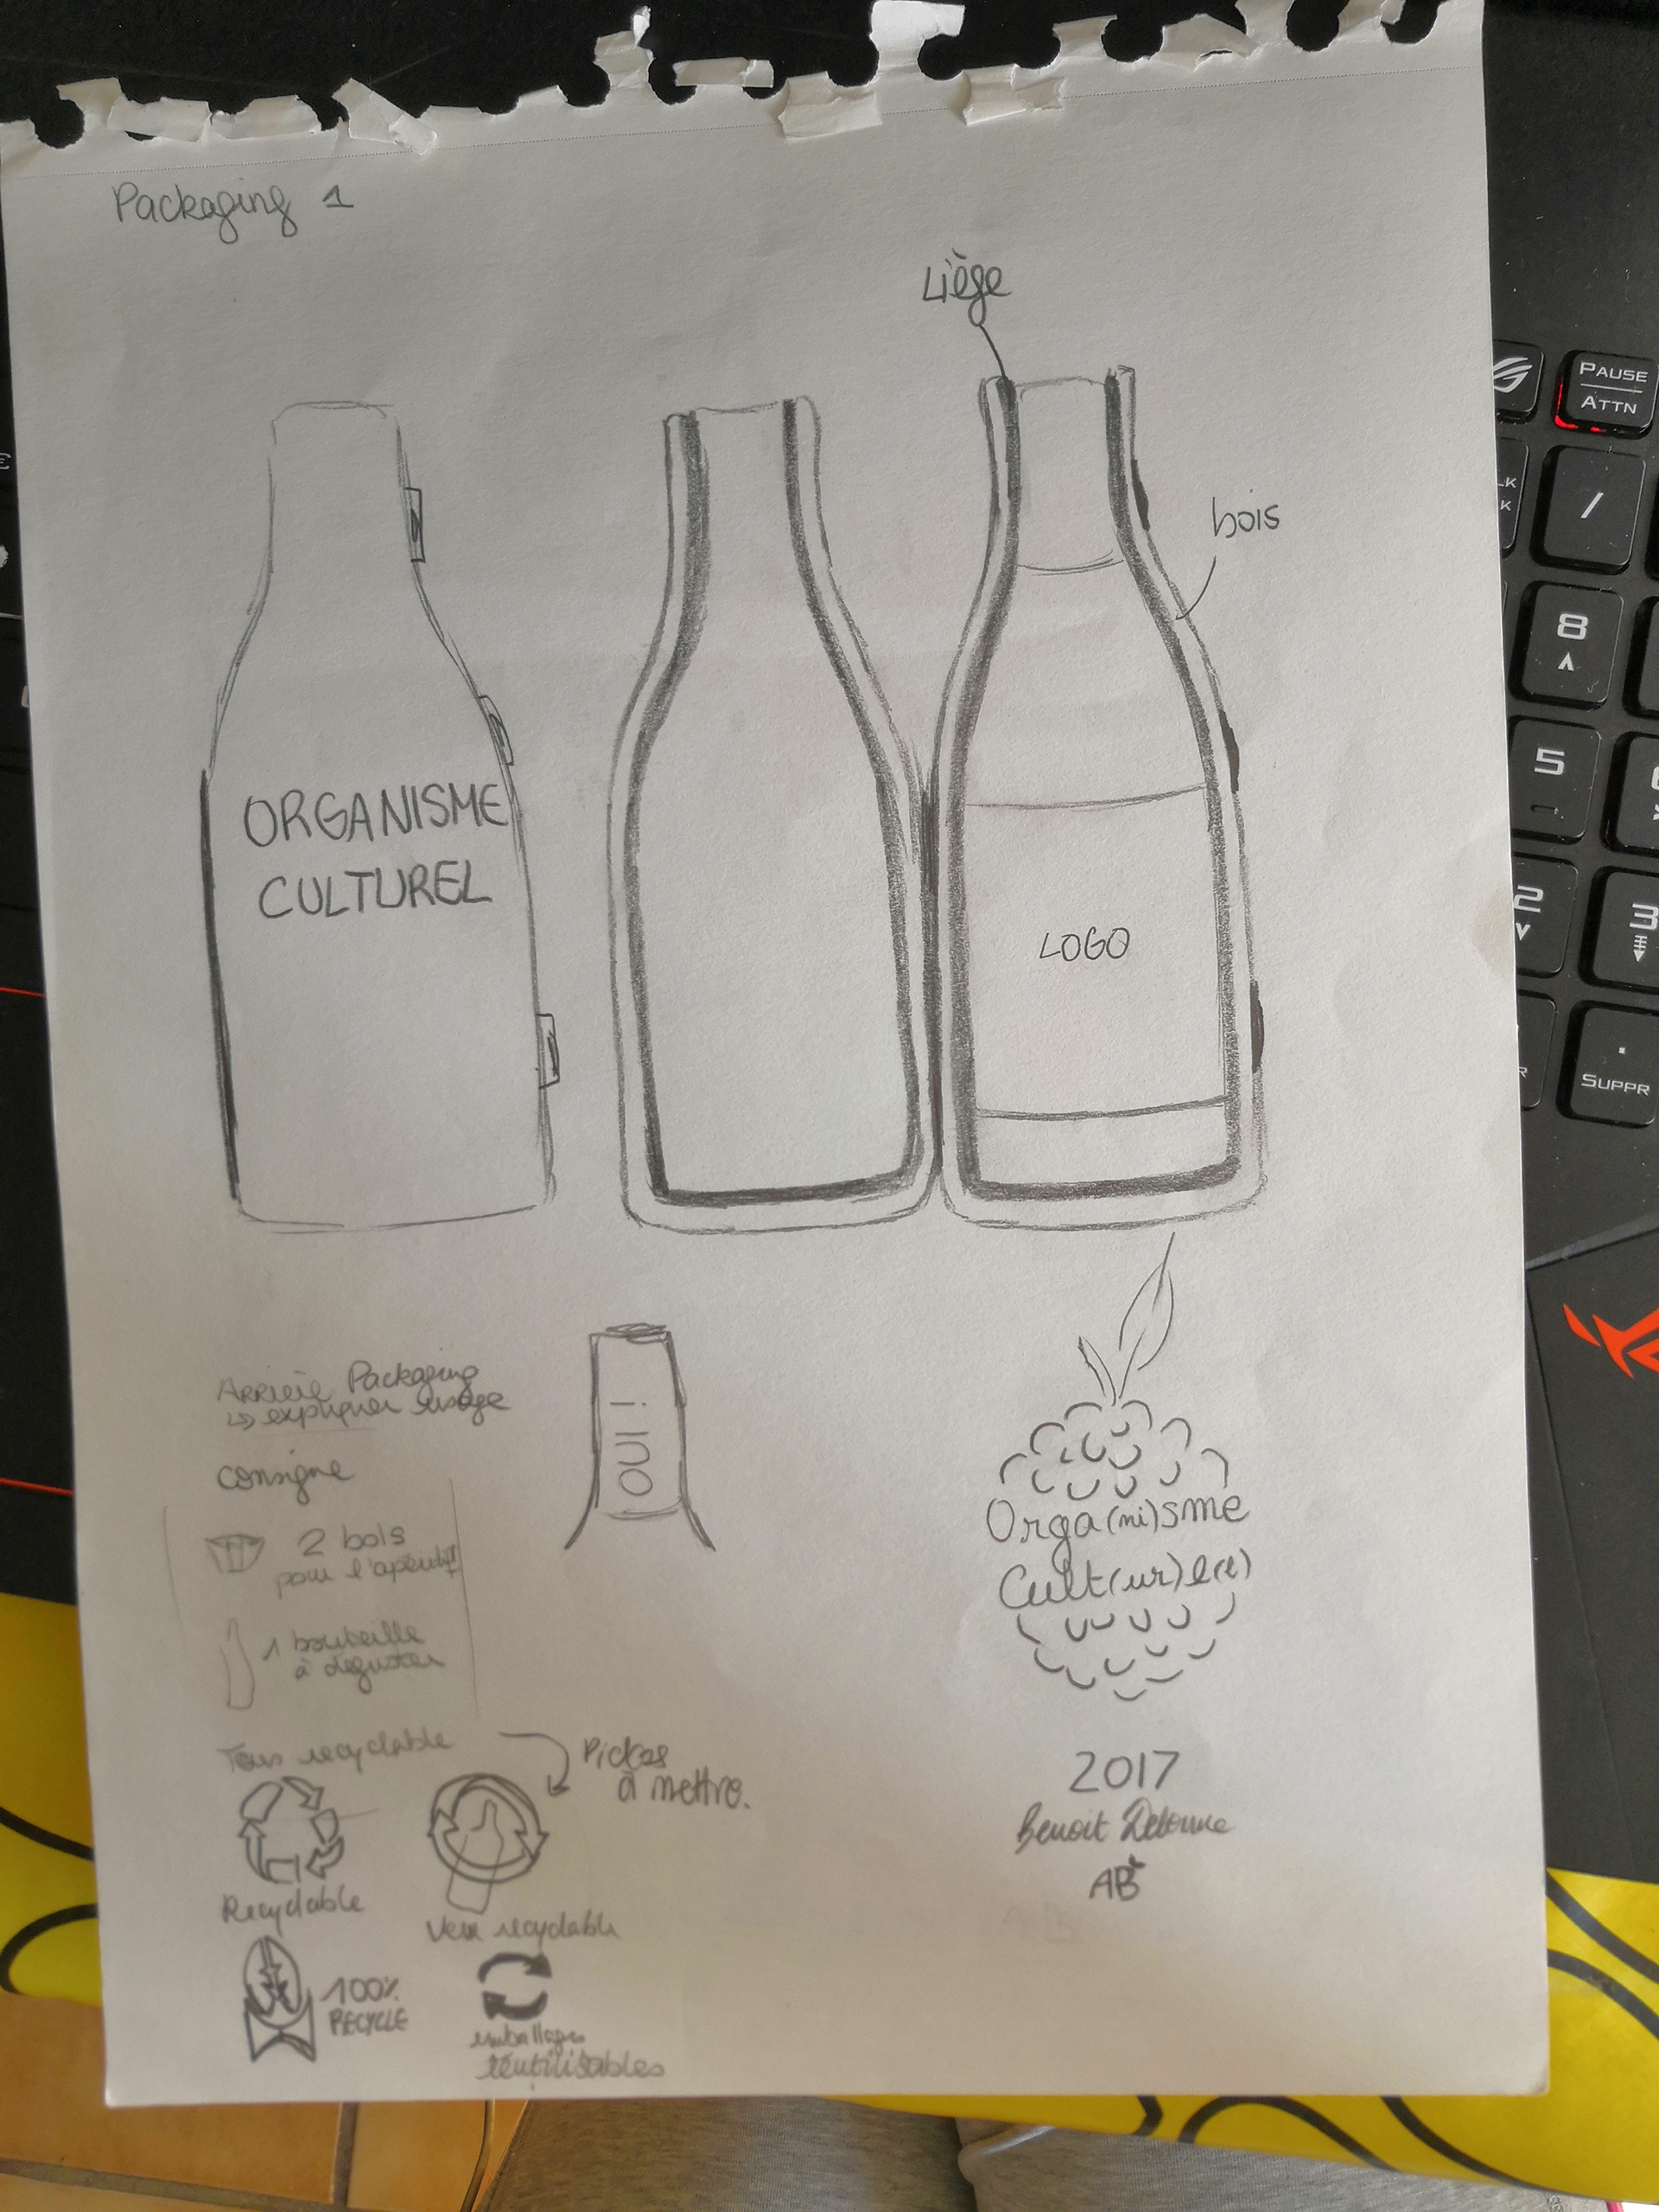 Packaging 1
Liège
bois
ORGANISME
CULTUREL
LOGO
Arrière Packaging
↳ expliquer usage
consigne
2 bols
pour l'apéritif
1 bouteille
à déguster
OUI !
Orga(ni)sme
Cult(ur)e(l)
Tous recyclable
Pictos
à mettre.
Recyclable
Verre recyclable
100%
RECYCLE
emballages
réutilisables
2017
Benoit
AB
PAUSE
ATTN
/
8
5
2
3
.
SUPPR